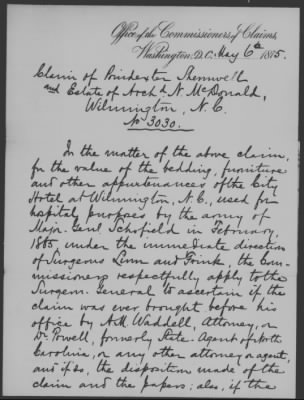 Office of the Commissioners of Claims,
Washington, D.C. May 6th 1875.
Claim of Poindexter
and Estate of Arch'd N. McDonald,
Wilmington, N.C.
No 3030.
In the matter of the above claim,
for the value of the bedding, furniture
and other appurtenances of the City
Hotel at Wilmington, N.C., used for
hospital purposes by the army of
Major. Genl Schofield in February,
1865, under the immediate direction
of Surgeons and the Com-
missioners respectfully apply to the
Surgeon. General to ascertain if the
claim was ever brought before his
office by A.M. Waddell, Attorney, or
Dr. Powell, formerly State Agent of North
Carolina, or any other attorney or agent,
and if so, the disposition made of the
claim and the papers; also, if the